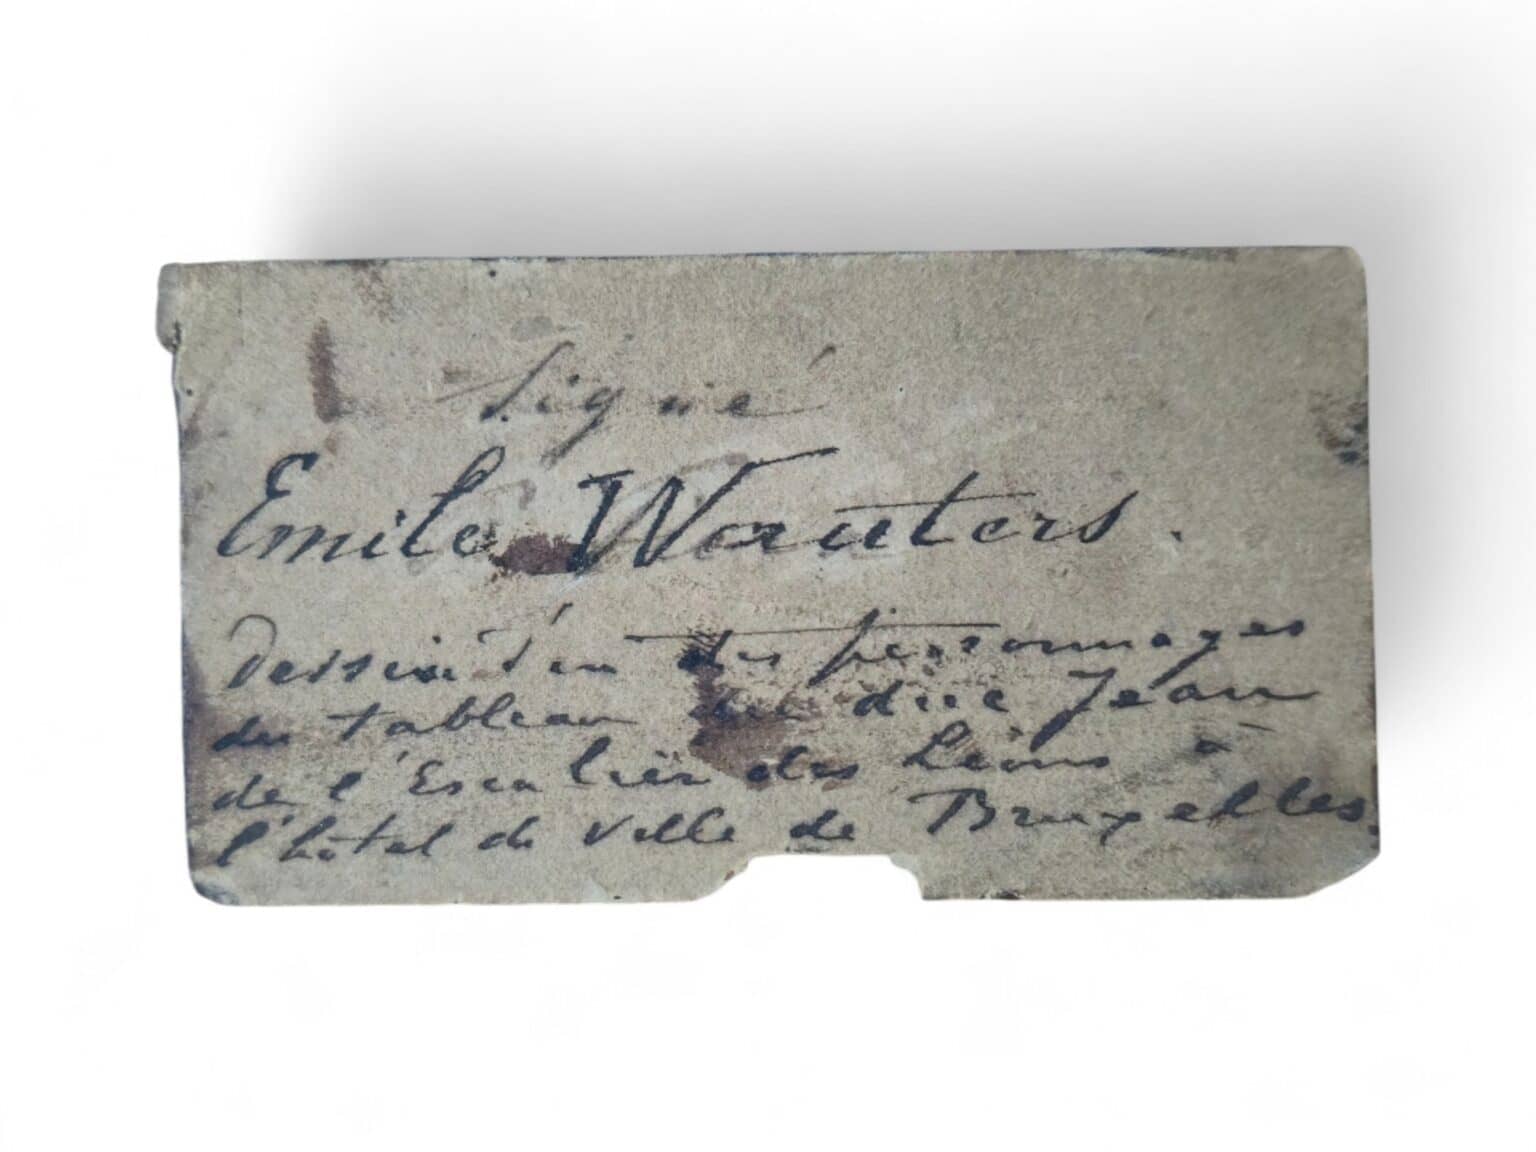 Signé
Emile Wauters.
Dessin d'un des personnages
du tableau du duc Jean
de l'Escalier des Lions à
l'hôtel de ville de Bruxelles.